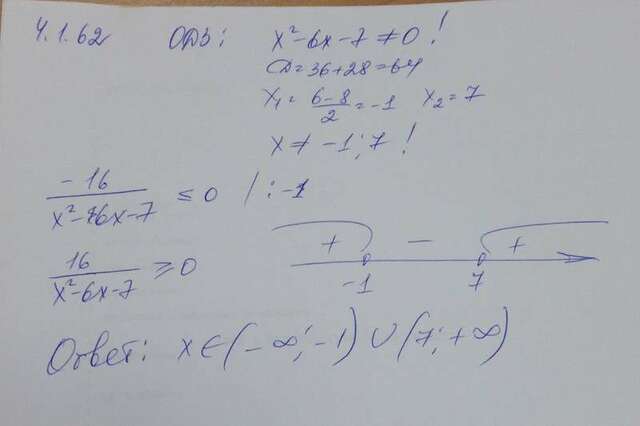 4.1.62 ОДЗ: x²-6x-7≠0!
D=36+28=64
x₁= (6-8)/2 =-1 x₂=7
x≠ -1; 7!
-16/(x²-6x-7) ≤0 /:-1
16/(x²-6x-7) ≥0
+ − +
-1 7
Ответ: x∈(-∞;-1)∪(7;+∞)